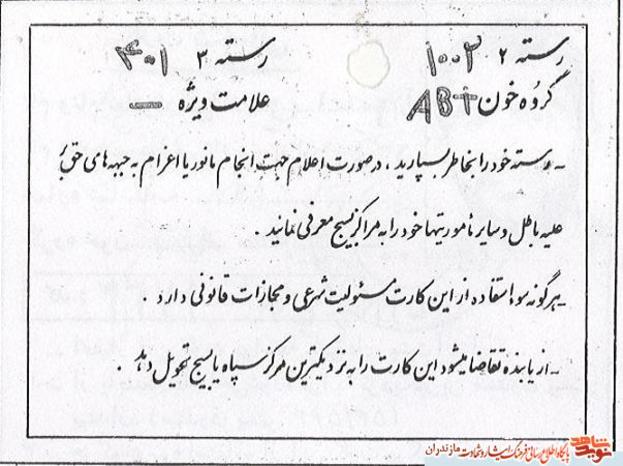 رسته ۲ ۱۰۰۲ رسته ۳ ۴۰۱
گروه خون AB+ علامت ویژه —
- رسته خود را بخاطر بسپارید ، در صورت اعلام جهت انجام مانور یا اعزام به جبهه های حق
علیه باطل و سایر مأموریتها خود را به مراکز بسیج معرفی نمائید .
- هرگونه سوء استفاده از این کارت مسئولیت شرعی و مجازات قانونی دارد .
- از یابنده تقاضا میشود این کارت را به نزدیکترین مرکز سپاه یا بسیج تحویل دهد .
نوید شاهد
پایگاه اطلاع رسانی فرهنگ ایثار و شهادت مازندران